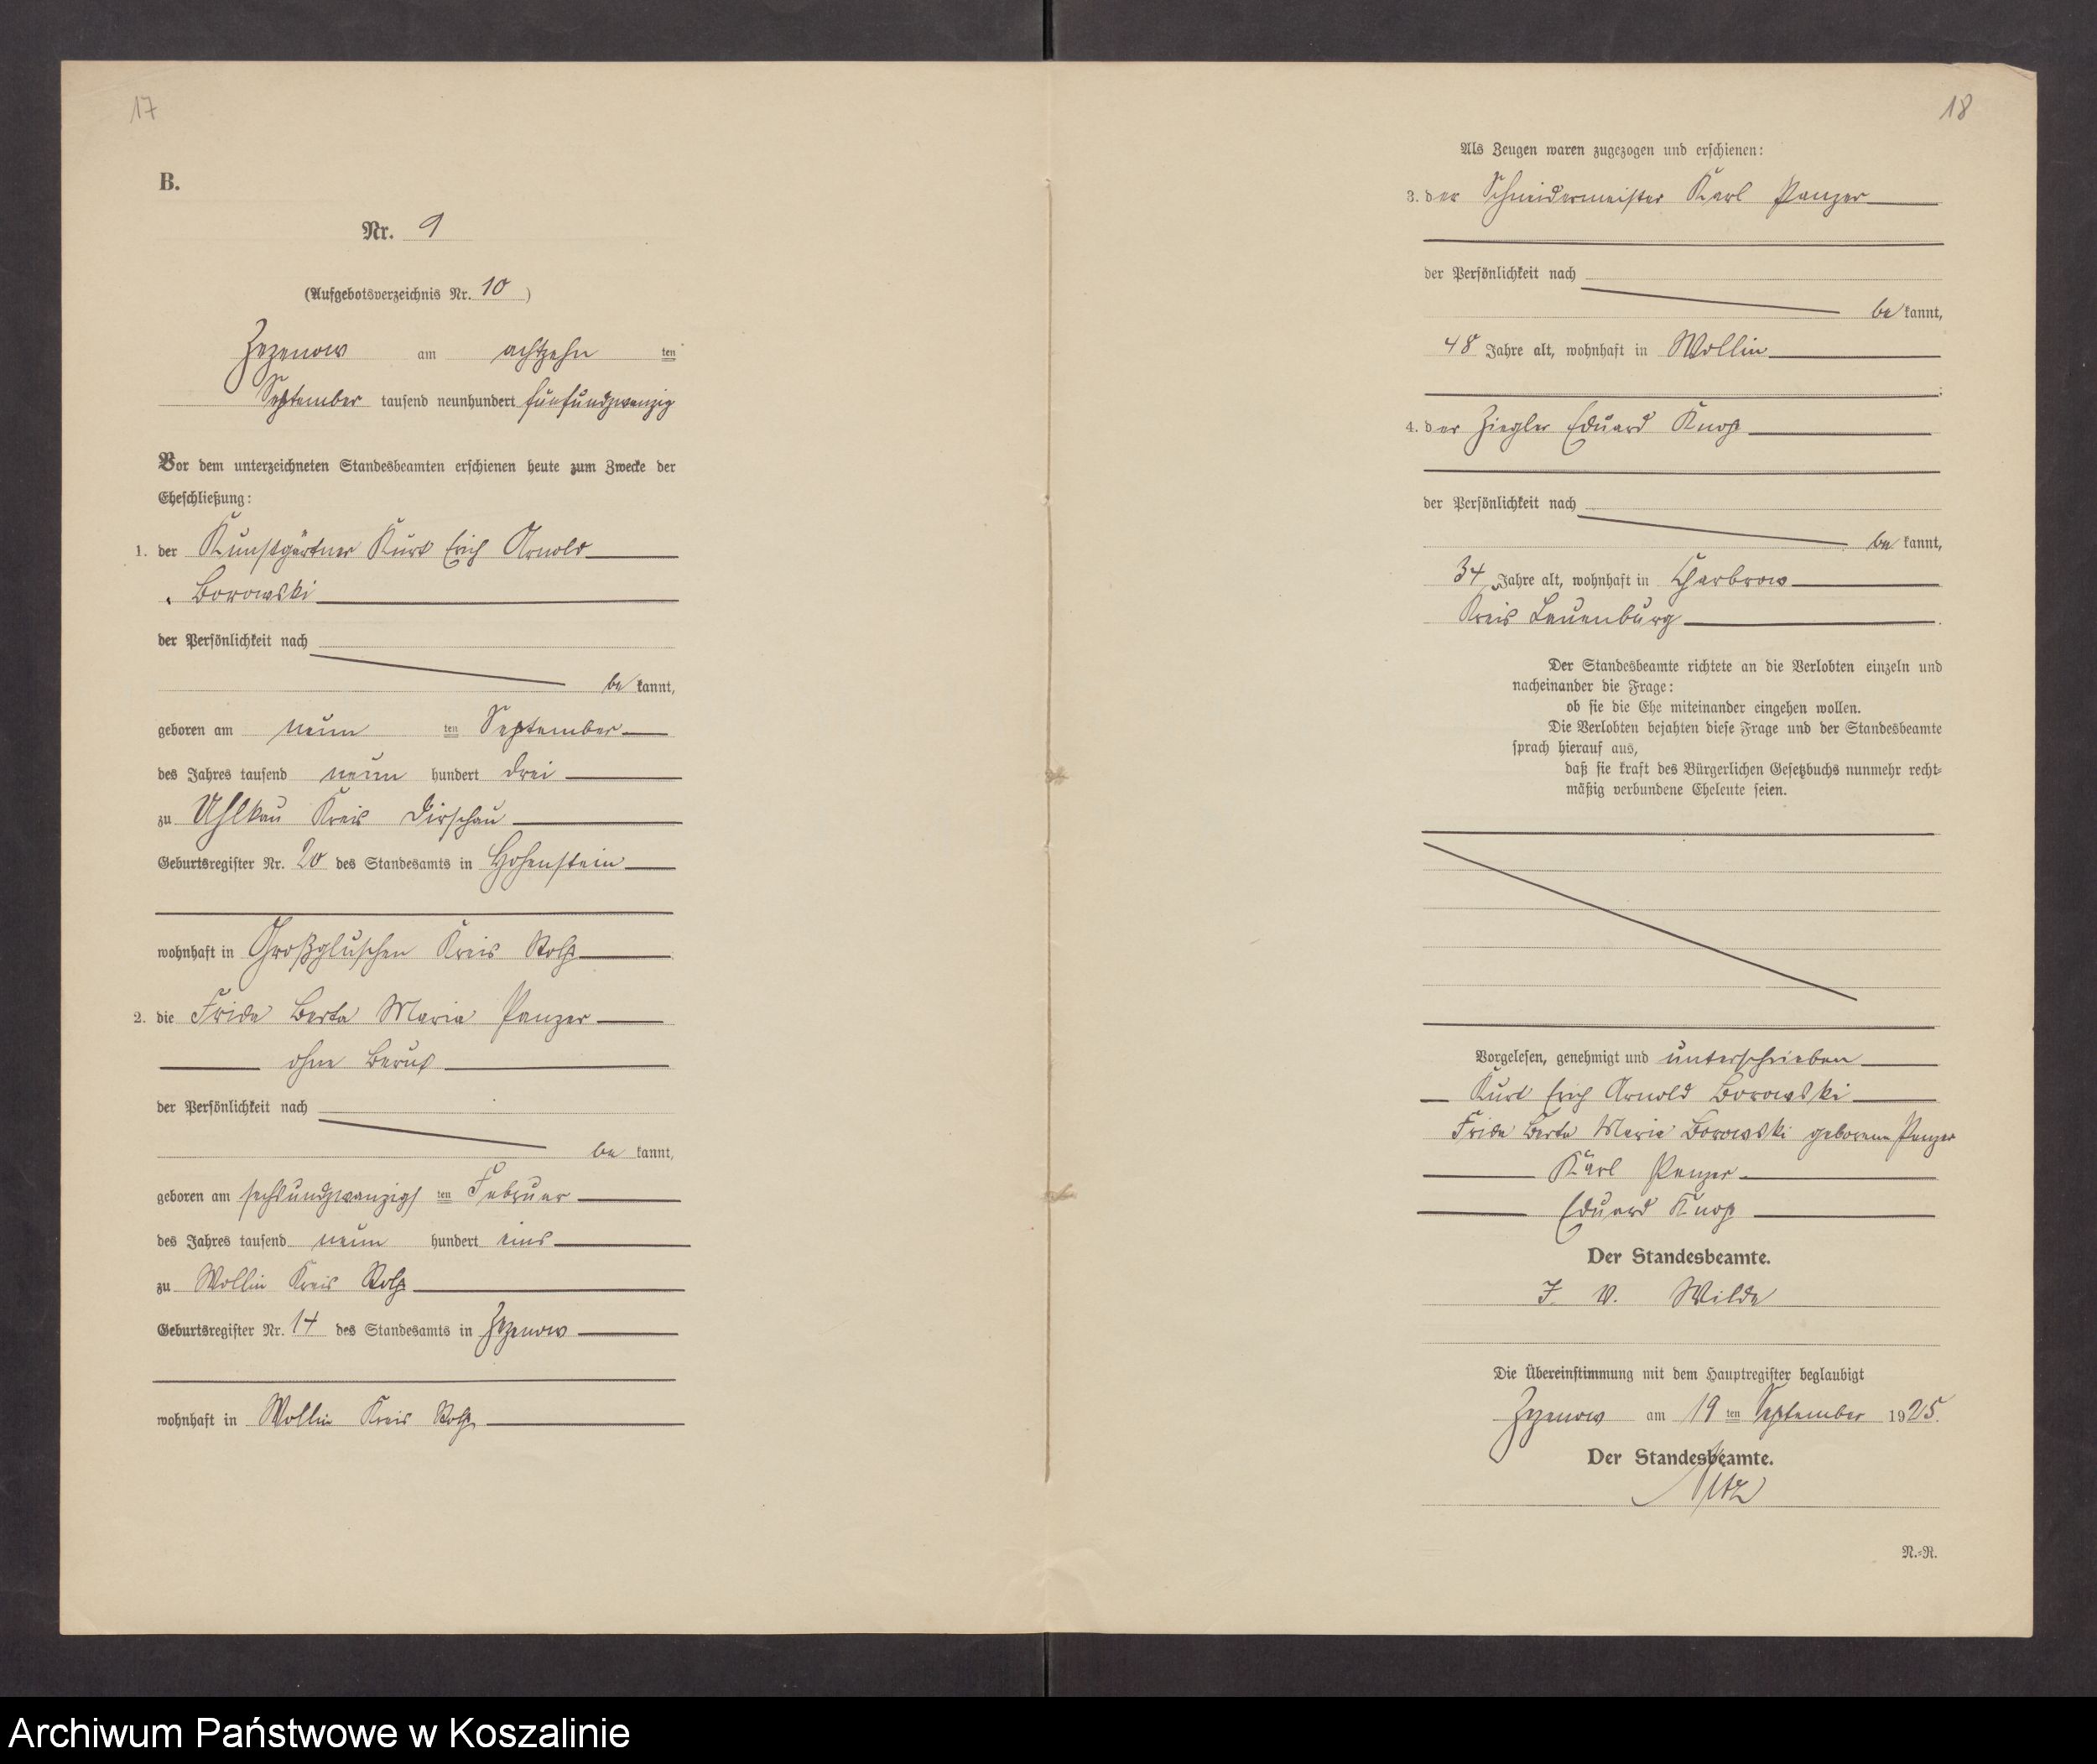 17
B.
Nr. 9
(Aufgebotsverzeichnis Nr. 10)
Zezenow am achtzehn ten
September tausend neunhundert fünfundzwanzig
Vor dem unterzeichneten Standesbeamten erschienen heute zum Zwecke der
Eheschließung:
1. der Kunstgärtner Kurt Erich Arnold
Borowski
der Persönlichkeit nach
be kannt,
geboren am neun ten September
des Jahres tausend neun hundert drei
zu Uhlkau Kreis Dirschau
Geburtsregister Nr. 20 des Standesamts in Hohenstein
wohnhaft in Großgluschen Kreis Stolp
2. die Frida Berta Maria Panzer
ohne Beruf
der Persönlichkeit nach
be kannt,
geboren am sechsundzwanzigs ten Februar
des Jahres tausend neun hundert eins
zu Wollin Kreis Stolp
Geburtsregister Nr. 14 des Standesamts in Zezenow
wohnhaft in Wollin Kreis Stolp
18
Als Zeugen waren zugezogen und erschienen:
3. der Schneidermeister Karl Panzer
der Persönlichkeit nach
be kannt,
48 Jahre alt, wohnhaft in Wollin
;
4. der Ziegler Eduard Knop
der Persönlichkeit nach
be kannt,
34 Jahre alt, wohnhaft in Charbrow
Kreis Lauenburg.
Der Standesbeamte richtete an die Verlobten einzeln und
nacheinander die Frage:
ob sie die Ehe miteinander eingehen wollen.
Die Verlobten bejahten diese Frage und der Standesbeamte
sprach hierauf aus,
daß sie kraft des Bürgerlichen Gesetzbuchs nunmehr recht-
mäßig verbundene Eheleute seien.
Vorgelesen, genehmigt und unterschrieben
Kurt Erich Arnold Borowski
Frida Berta Maria Borowski geborene Panzer
Karl Panzer
Eduard Knop
Der Standesbeamte.
J. V. Wilde
Die Übereinstimmung mit dem Hauptregister beglaubigt
Zezenow am 19 ten September 1925.
Der Standesbeamte.
N.-R.
Archiwum Państwowe w Koszalinie